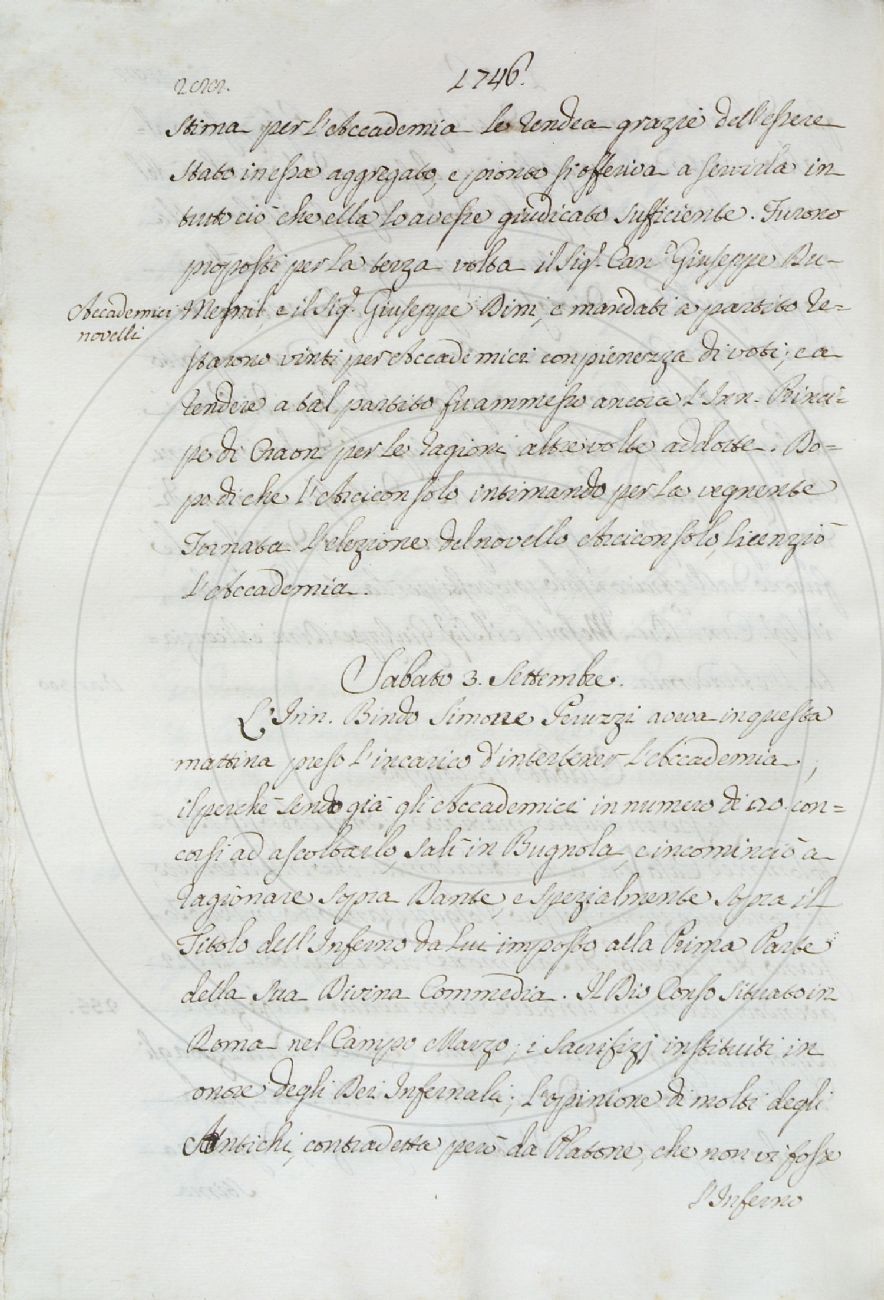 1746.
Stima per l'Accademia le rendea grazie dell'essere
stato in essa aggregato, e pronto si offeriva a servirla in
tutto ciò che ella lo avesse giudicato sufficiente. Furono
proposti per la terza volta il Sig.r Can.co Giuseppe Du-
Accademici novelli
Mesnil, e il Sig.r Giuseppe Bini, e mandati a partito re-
starono vinti per Accademici con pienezza di voti; e a
rendere a tal partito fu ammesso ancora l'Inn. Princi-
pe di Craon per le ragioni altre volte addotte. Do-
po di che l'Arciconsolo intimando per la vegnente
Tornata l'elezione del novello Arciconsolo, licenziò
l'Accademia.
Sabato 3. Settembre.
L'Inn. Bindo Simone Peruzzi aveva in questa
mattina preso l'incarico d'intertener l'Accademia,
il perchè sendo già gli Accademici in numero di 20. con=
corsi ad ascoltarlo, salì in Bugnola, e incominciò a
ragionare sopra Dante, e spezialmente sopra il
Titolo dell'Inferno da lui imposto alla Prima Parte
della sua Divina Commedia. Il Dio Conso situato in
Roma nel Campo Marzo; i Sacrifizj instituiti in
onore degli Dei Infernali; l'opinione di molti degli
Antichi, contradetta però da Platone, che non vi fosse
l'Inferno